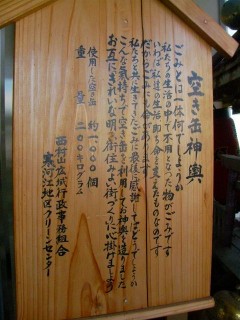 空き缶神輿
ごみとは一体何でしょうか
私たちの生活の中で不用となった物がごみです
いわば私達の生活に命を与えたものなのです
だからごみにも命が
私たちと共に生きてきたごみに最後に感謝して
こんな気持ちで空き缶を利用してお神輿を造りました
お互にきれいな明るい街住みよい街づくりに心掛けましょう
使用した空き缶 約一〇〇〇個
重量 二〇〇キログラム
西村山広域行政事務組合
寒河江地区クリーンセンター